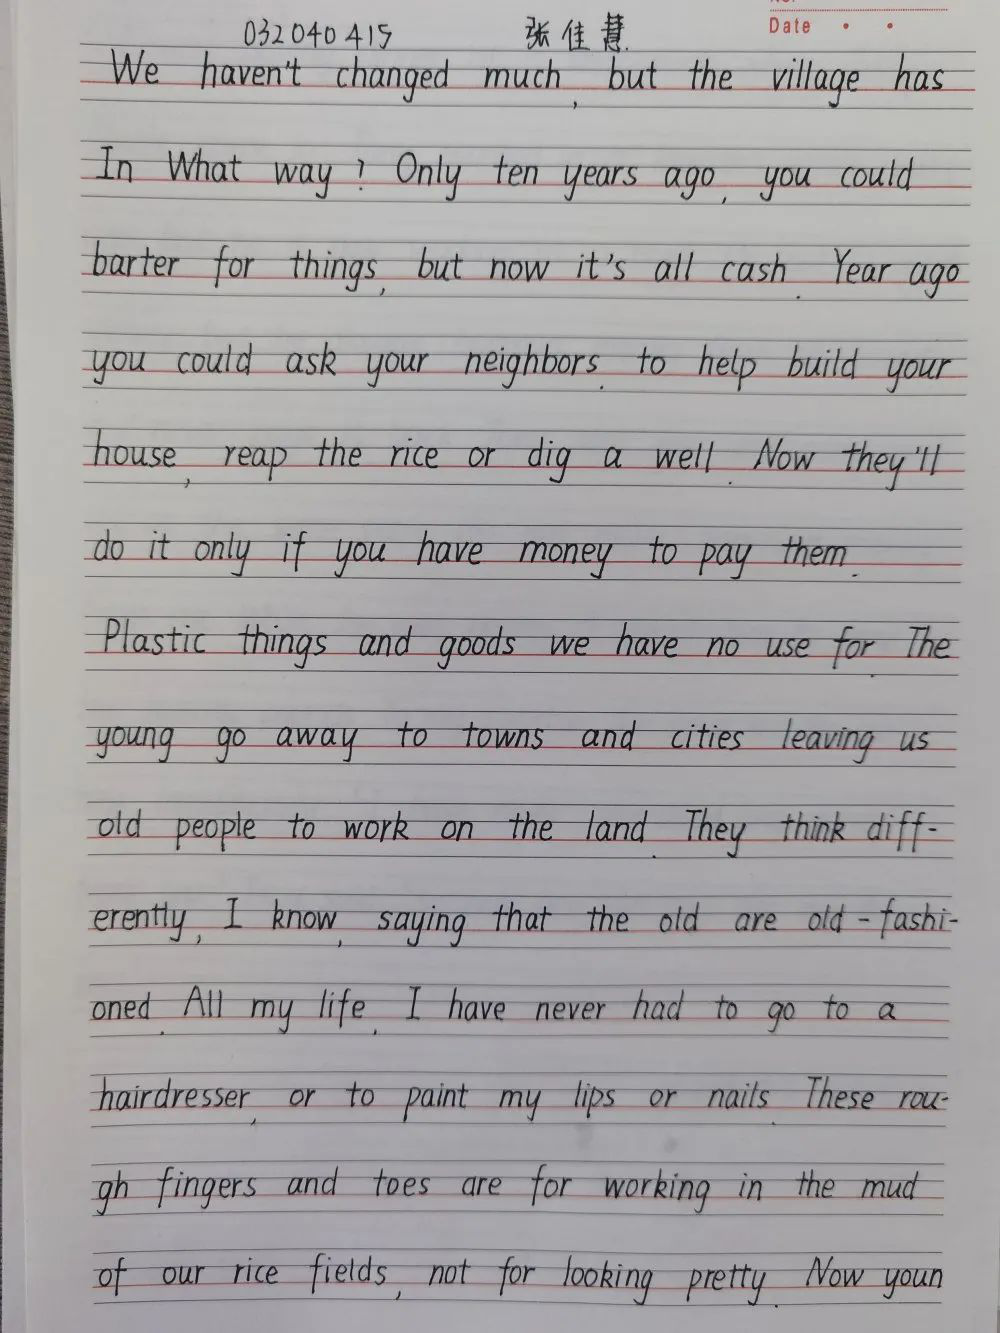 No.
032040415 张佳慧 Date
We haven't changed much, but the village has
In What way? Only ten years ago, you could
barter for things, but now it's all cash. Year ago
you could ask your neighbors. to help build your
house, reap the rice or dig a well. Now they'll
do it only if you have money to pay them.
Plastic things and goods we have no use for. The
young go away to towns and cities leaving us
old people to work on the land. They think diff-
erently, I know, saying that the old are old-fashi-
oned. All my life, I have never had to go to a
hairdresser, or to paint my lips or nails. These rou-
gh fingers and toes are for working in the mud
of our rice fields, not for looking pretty. Now youn